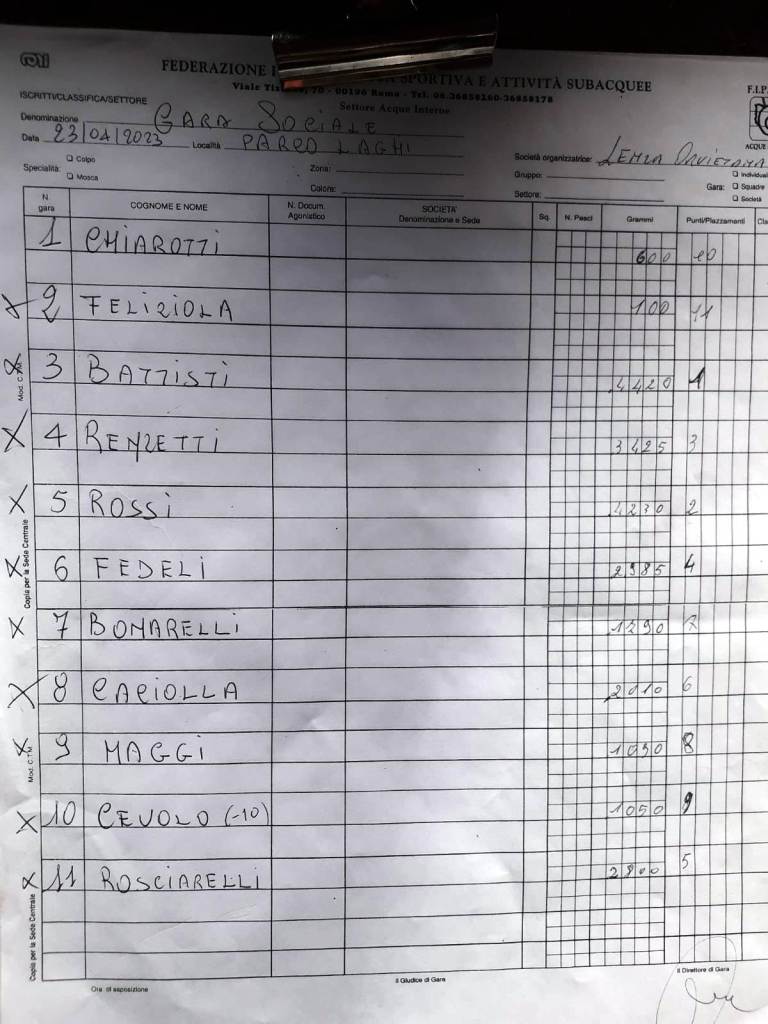 FEDERAZIONE SPORTIVA E ATTIVITÀ SUBACQUEE
Viale 70 - 00196 Roma - Tel. 06.36858260-36858178
Settore Acque Interne
ISCRITTI/CLASSIFICA/SETTORE
Denominazione GARA SOCIALE
Data 23/04/2023 Località PARCO LAGHI
Società organizzatrice: LENZA ORVIETANA
Specialità: Colpo Mosca
Zona:
Colore:
Gruppo:
Settore:
Gara: Individual Squadre Società
N. gara COGNOME E NOME N. Docum. Agonistico SOCIETA' Denominazione e Sede Sq. N. Pesci Grammi Punti/Piazzamenti Cla
1 CHIAROTTI 600 10
2 FELIZIOLA 100 11
3 BATTISTI 4420 1
4 RENZETTI 3425 3
5 ROSSI 4230 2
6 FEDELI 2985 4
7 BONARELLI 1290 7
8 CACIOLLA 2010 6
9 MAGGI 1090 8
10 CEVOLO (-10) 1050 9
11 ROSCIARELLI 2900 5
Mod. C.T.M.
Copia per la Sede Centrale
Mod. C.T.M.
Copia per la Sede Centrale
Ora di esposizione
Il Giudice di Gara
Il Direttore di Gara